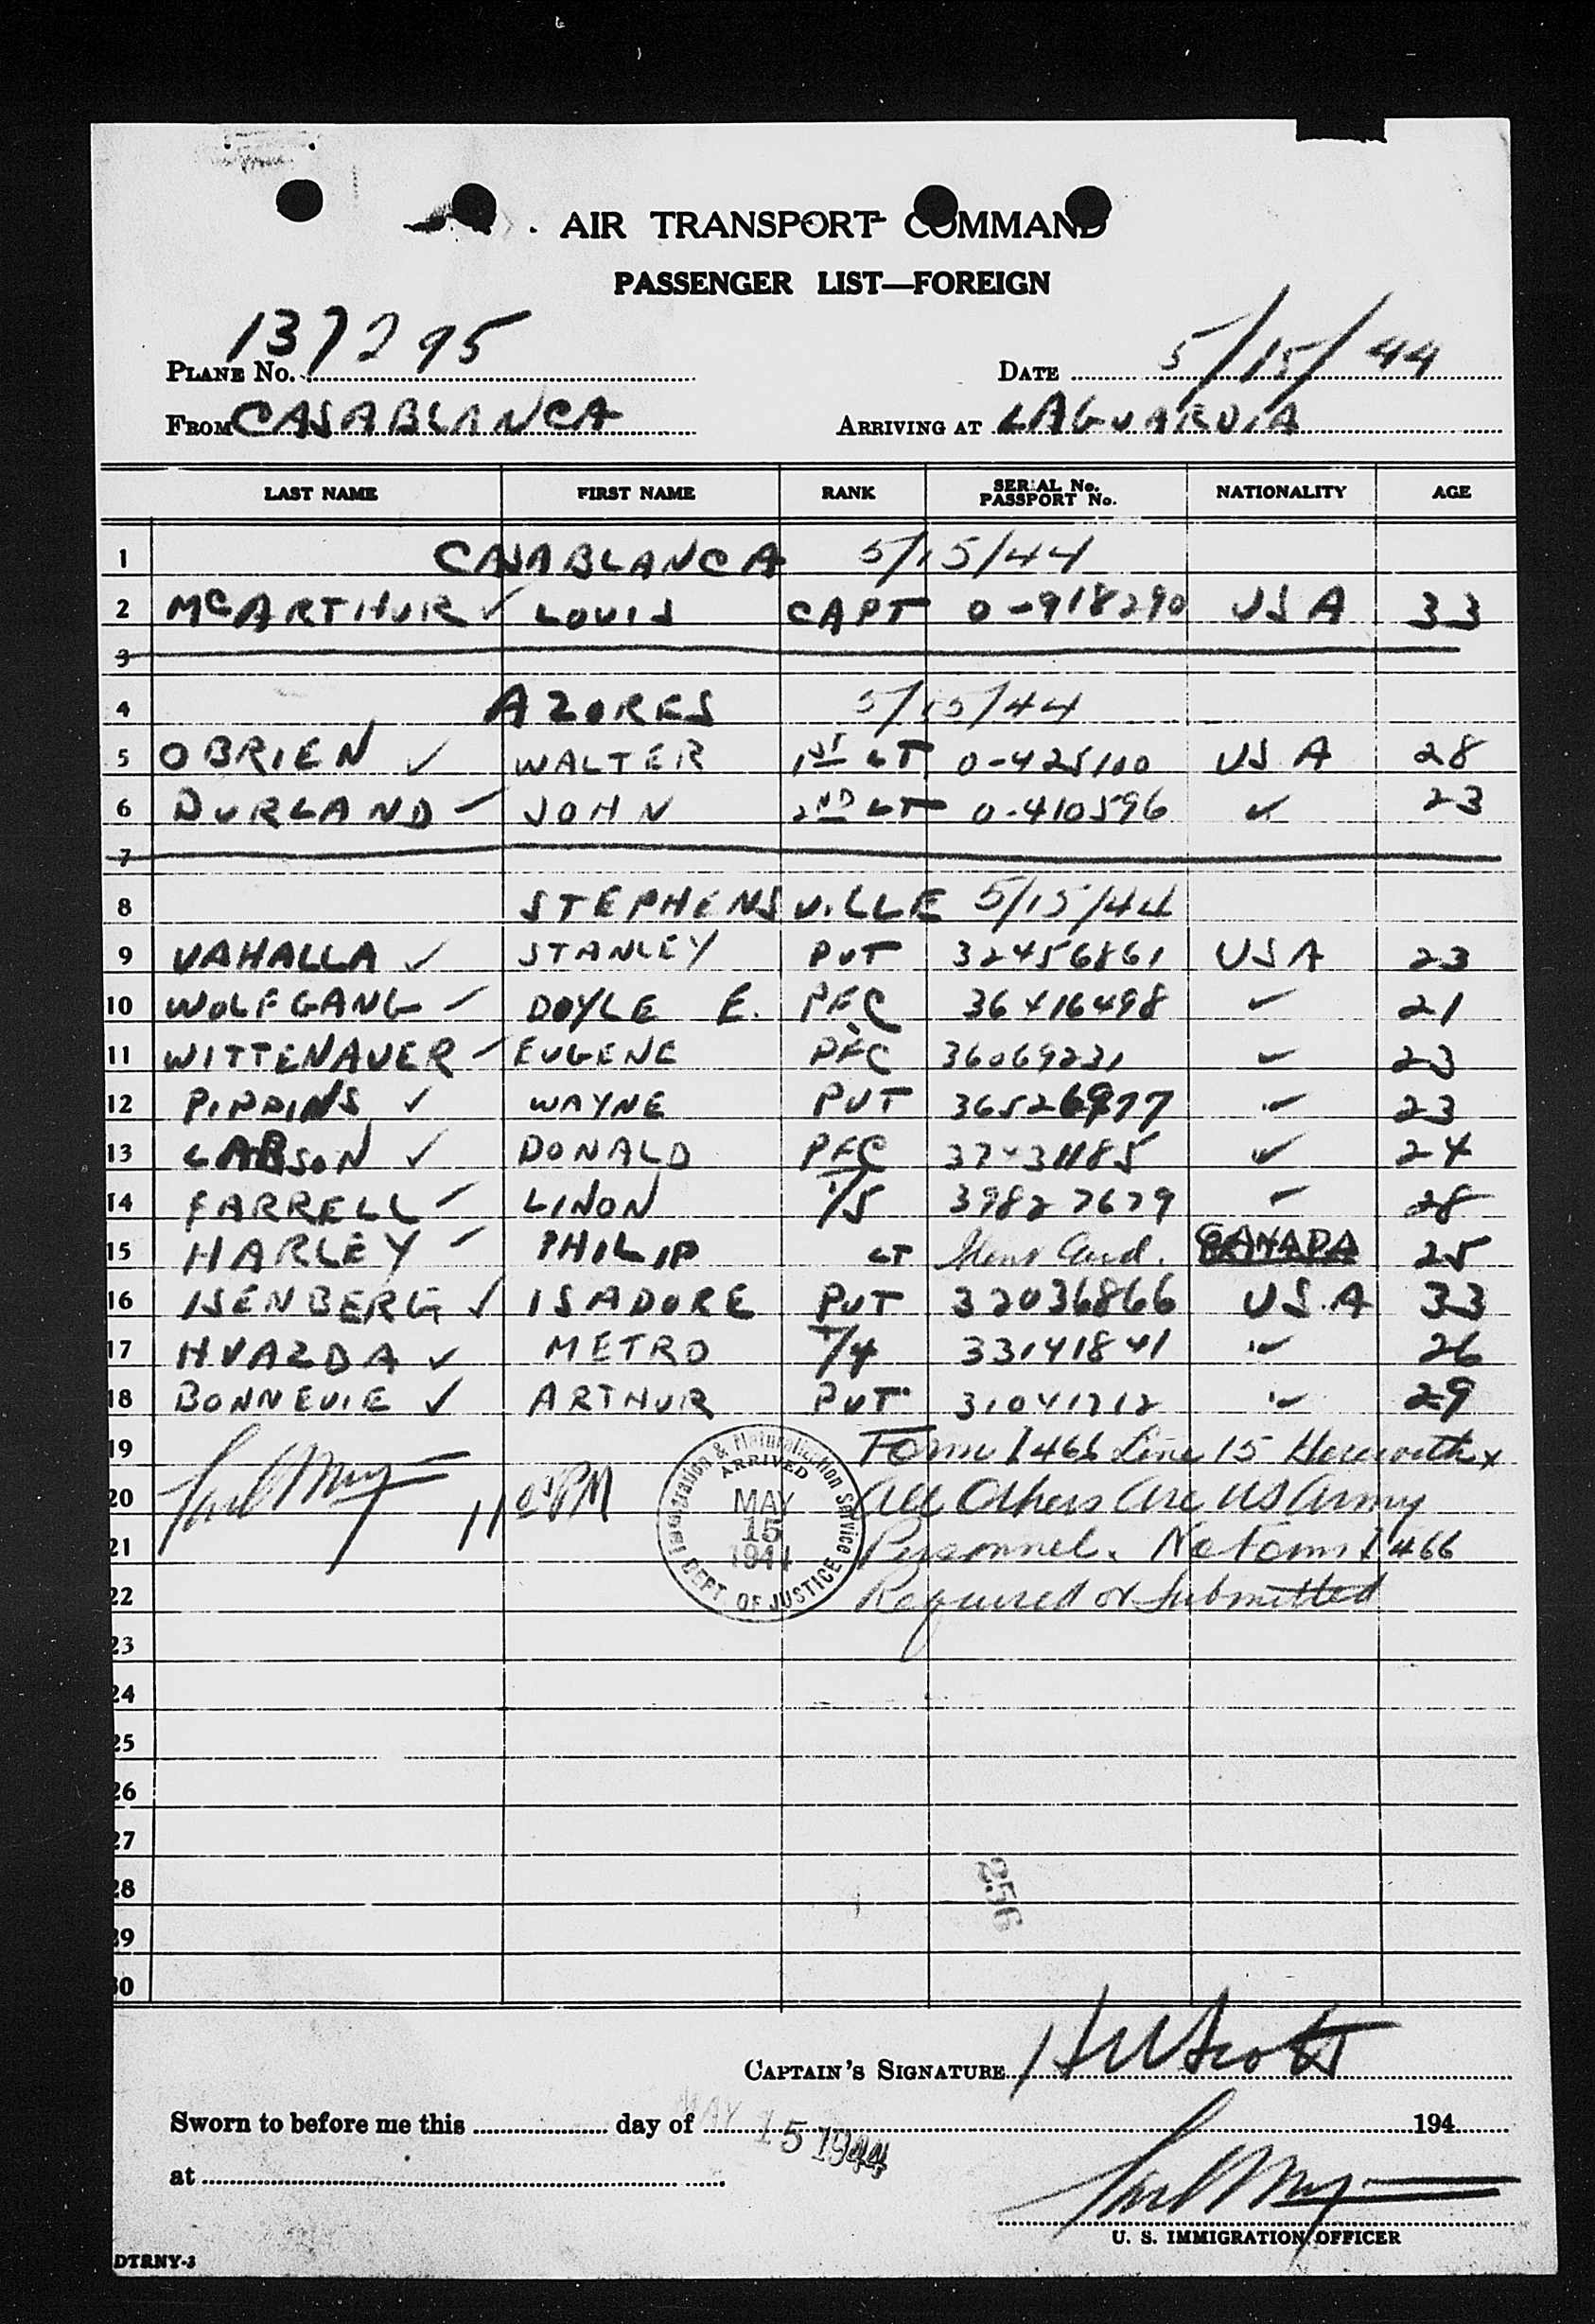 AIR TRANSPORT COMMAND
PASSENGER LIST—FOREIGN
PLANE NO. 137295 DATE 5/15/44
FROM CASABLANCA ARRIVING AT LAGUARDIA
LAST NAME FIRST NAME RANK SERIAL No. PASSPORT No. NATIONALITY AGE
1 CASABLANCA 5/15/44
2 McARTHUR ✓ LOUIS CAPT 0-918290 USA 33
3
4 AZORES 5/15/44
5 OBRIEN ✓ WALTER 1ST LT 0-425100 USA 28
6 DURLAND ✓ JOHN 2ND LT 0-410596 ✓ 23
7
8 STEPHENSVILLE 5/15/44
9 VAHALLA ✓ STANLEY PVT 32456861 USA 23
10 WOLFGANG ✓ DOYLE E. PFC 36416498 ✓ 21
11 WITTENAUER ✓ EUGENE PFC 36069231 ✓ 23
12 PIPPINS ✓ WAYNE PVT 36526977 ✓ 23
13 LARSON ✓ DONALD PFC 37431185 ✓ 24
14 FARRELL ✓ LINON T/5 39827679 ✓ 28
15 HARLEY ✓ PHILIP LT Card. CANADA 25
16 ISENBERG ✓ ISADORE PVT 32036866 USA 33
17 HVAZDA ✓ METRO T/4 33141841 ✓ 26
18 BONNEVIE ✓ ARTHUR PVT 31041712 ✓ 29
19 Form I 466 Line 15 Herewith
20 11 PM All Others Are US Army
21 Personnel. No Form I 466
22 Required or Submitted
Immigration & Naturalization Service
ARRIVED
MAY
15
1944
DEPT. OF JUSTICE
23
24
25
26
27
28
256
29
30
CAPTAIN'S SIGNATURE H W Scott
Sworn to before me this day of MAY 15 1944 194
at
U. S. IMMIGRATION OFFICER
DTRNY-3